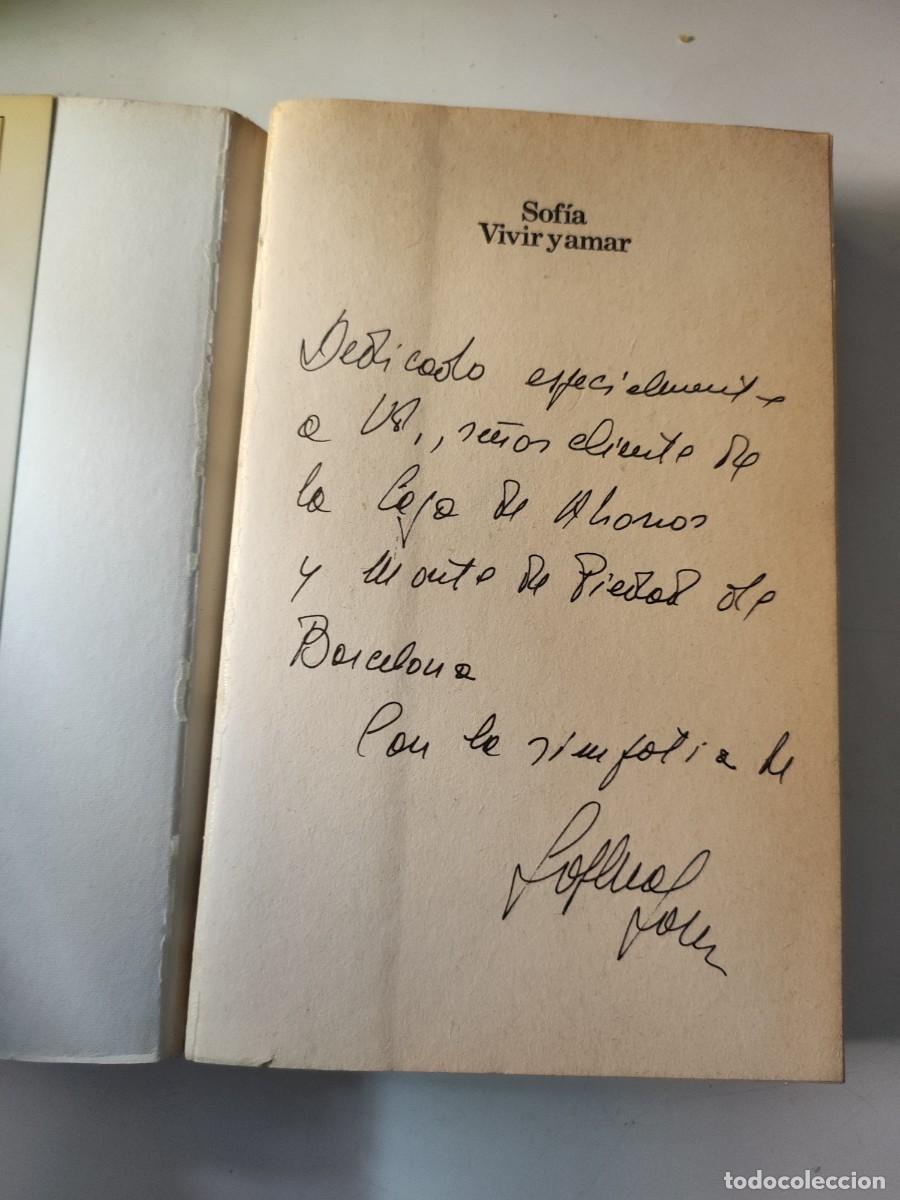 Sofía
Vivir y amar
Dedicado especialmente
a Vd., señor cliente de
la Caja de Ahorros
y Monte de Piedad de
Barcelona
Con la simpatia de
Sophia
Loren
todocoleccion.net